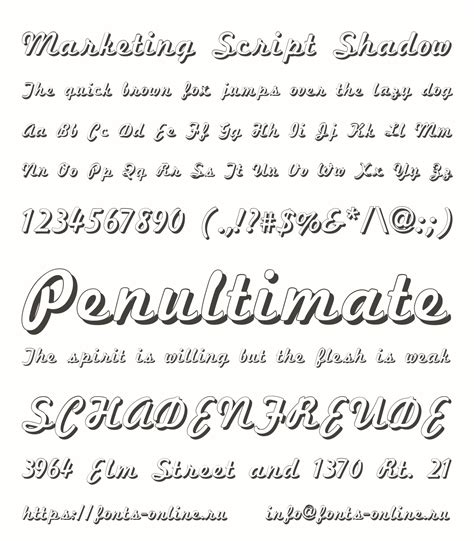 Marketing Script Shadow
The quick brown fox jumps over the lazy dog
Aa Bb Cc Dd Ee Ff Gg Hh Ii Jj Kk Ll Mm
Nn Oo Pp Qq Rr Ss Tt Uu Vv Ww Xx Yy Zz
1234567890 (.,!?#$%&*/\@:;)
Penultimate
The spirit is willing but the flesh is weak
SCHADENFREUDE
3964 Elm Street and 1370 Rt. 21
https://fonts-online.ru info@fonts-online.ru